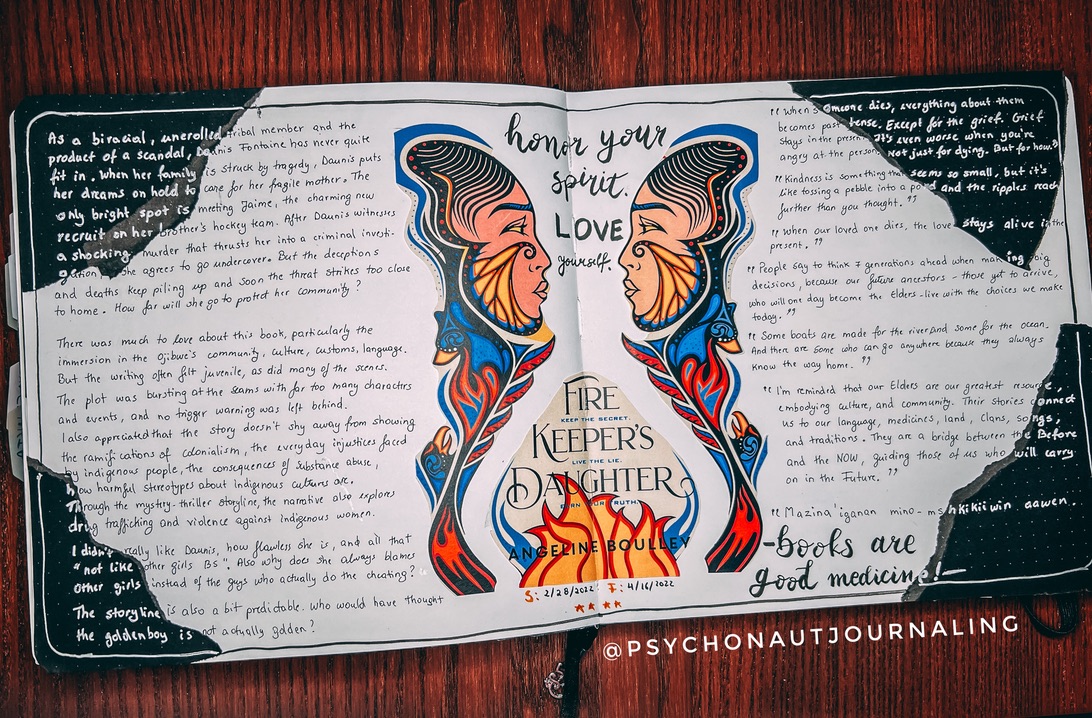 As a biracial, unerolled tribal member and the
product of a scandal, Daunis Fontaine has never quite
fit in. When her family is struck by tragedy, Daunis puts
her dreams on hold to care for her fragile mother. The
only bright spot is meeting Jaime, the charming new
recruit on her brother's hockey team. After Daunis witnesses
a shocking murder that thrusts her into a criminal investi-
gation, she agrees to go undercover. But the deceptions
and deaths keep piling up and soon the threat strikes too close
to home. How far will she go to protect her community?
There was much to love about this book, particularly the
immersion in the Ojibwe's community, culture, customs, language.
But the writing often felt juvenile, as did many of the scenes.
The plot was bursting at the seams with far too many characters
and events, and no trigger warning was left behind.
I also appreciated that the story doesn't shy away from showing
the ramifications of colonialism, the everyday injustices faced
by indigenous people, the consequences of substance abuse,
how harmful stereotypes about indigenous cultures are.
Through the mystery-thriller storyline, the narrative also explores
drug trafficking and violence against indigenous women.
I didn't really like Daunis, how flawless she is, and all that
"not like other girls BS". Also why does she always blames
other girls instead of the guys who actually do the cheating?
The storyline is also a bit predictable. Who would have thought
the goldenboy is not actually golden?
honor your
spirit.
LOVE
yourself.
FIRE
KEEP THE SECRET.
KEEPER'S
LIVE THE LIE.
DAUGHTER
EARN YOUR TRUTH.
ANGELINE BOULLEY
S: 2/28/2022 F: 4/16/2022
"When someone dies, everything about them
becomes past tense. Except for the grief. Grief
stays in the present. It's even worse when you're
angry at the person. Not just for dying. But for how."
"Kindness is something that seems so small, but it's
like tossing a pebble into a pond and the ripples reach
further than you thought."
"When our loved one dies, the love stays alive in the
present."
"People say to think 7 generations ahead when making big
decisions, because our future ancestors - those yet to arrive,
who will one day become the Elders - live with the choices we make
today."
"Some boats are made for the river and some for the ocean.
And there are some who can go anywhere because they always
know the way home."
"I'm reminded that our Elders are our greatest resource,
embodying culture, and community. Their stories connect
us to our language, medicines, land, clans, songs,
and traditions. They are a bridge between the Before
and the NOW, guiding those of us who will carry
on in the Future."
"Mazina'iganan mino-mshkikiiwin aawen.
-books are
good medicine."
@PSYCHONAUTJOURNALING